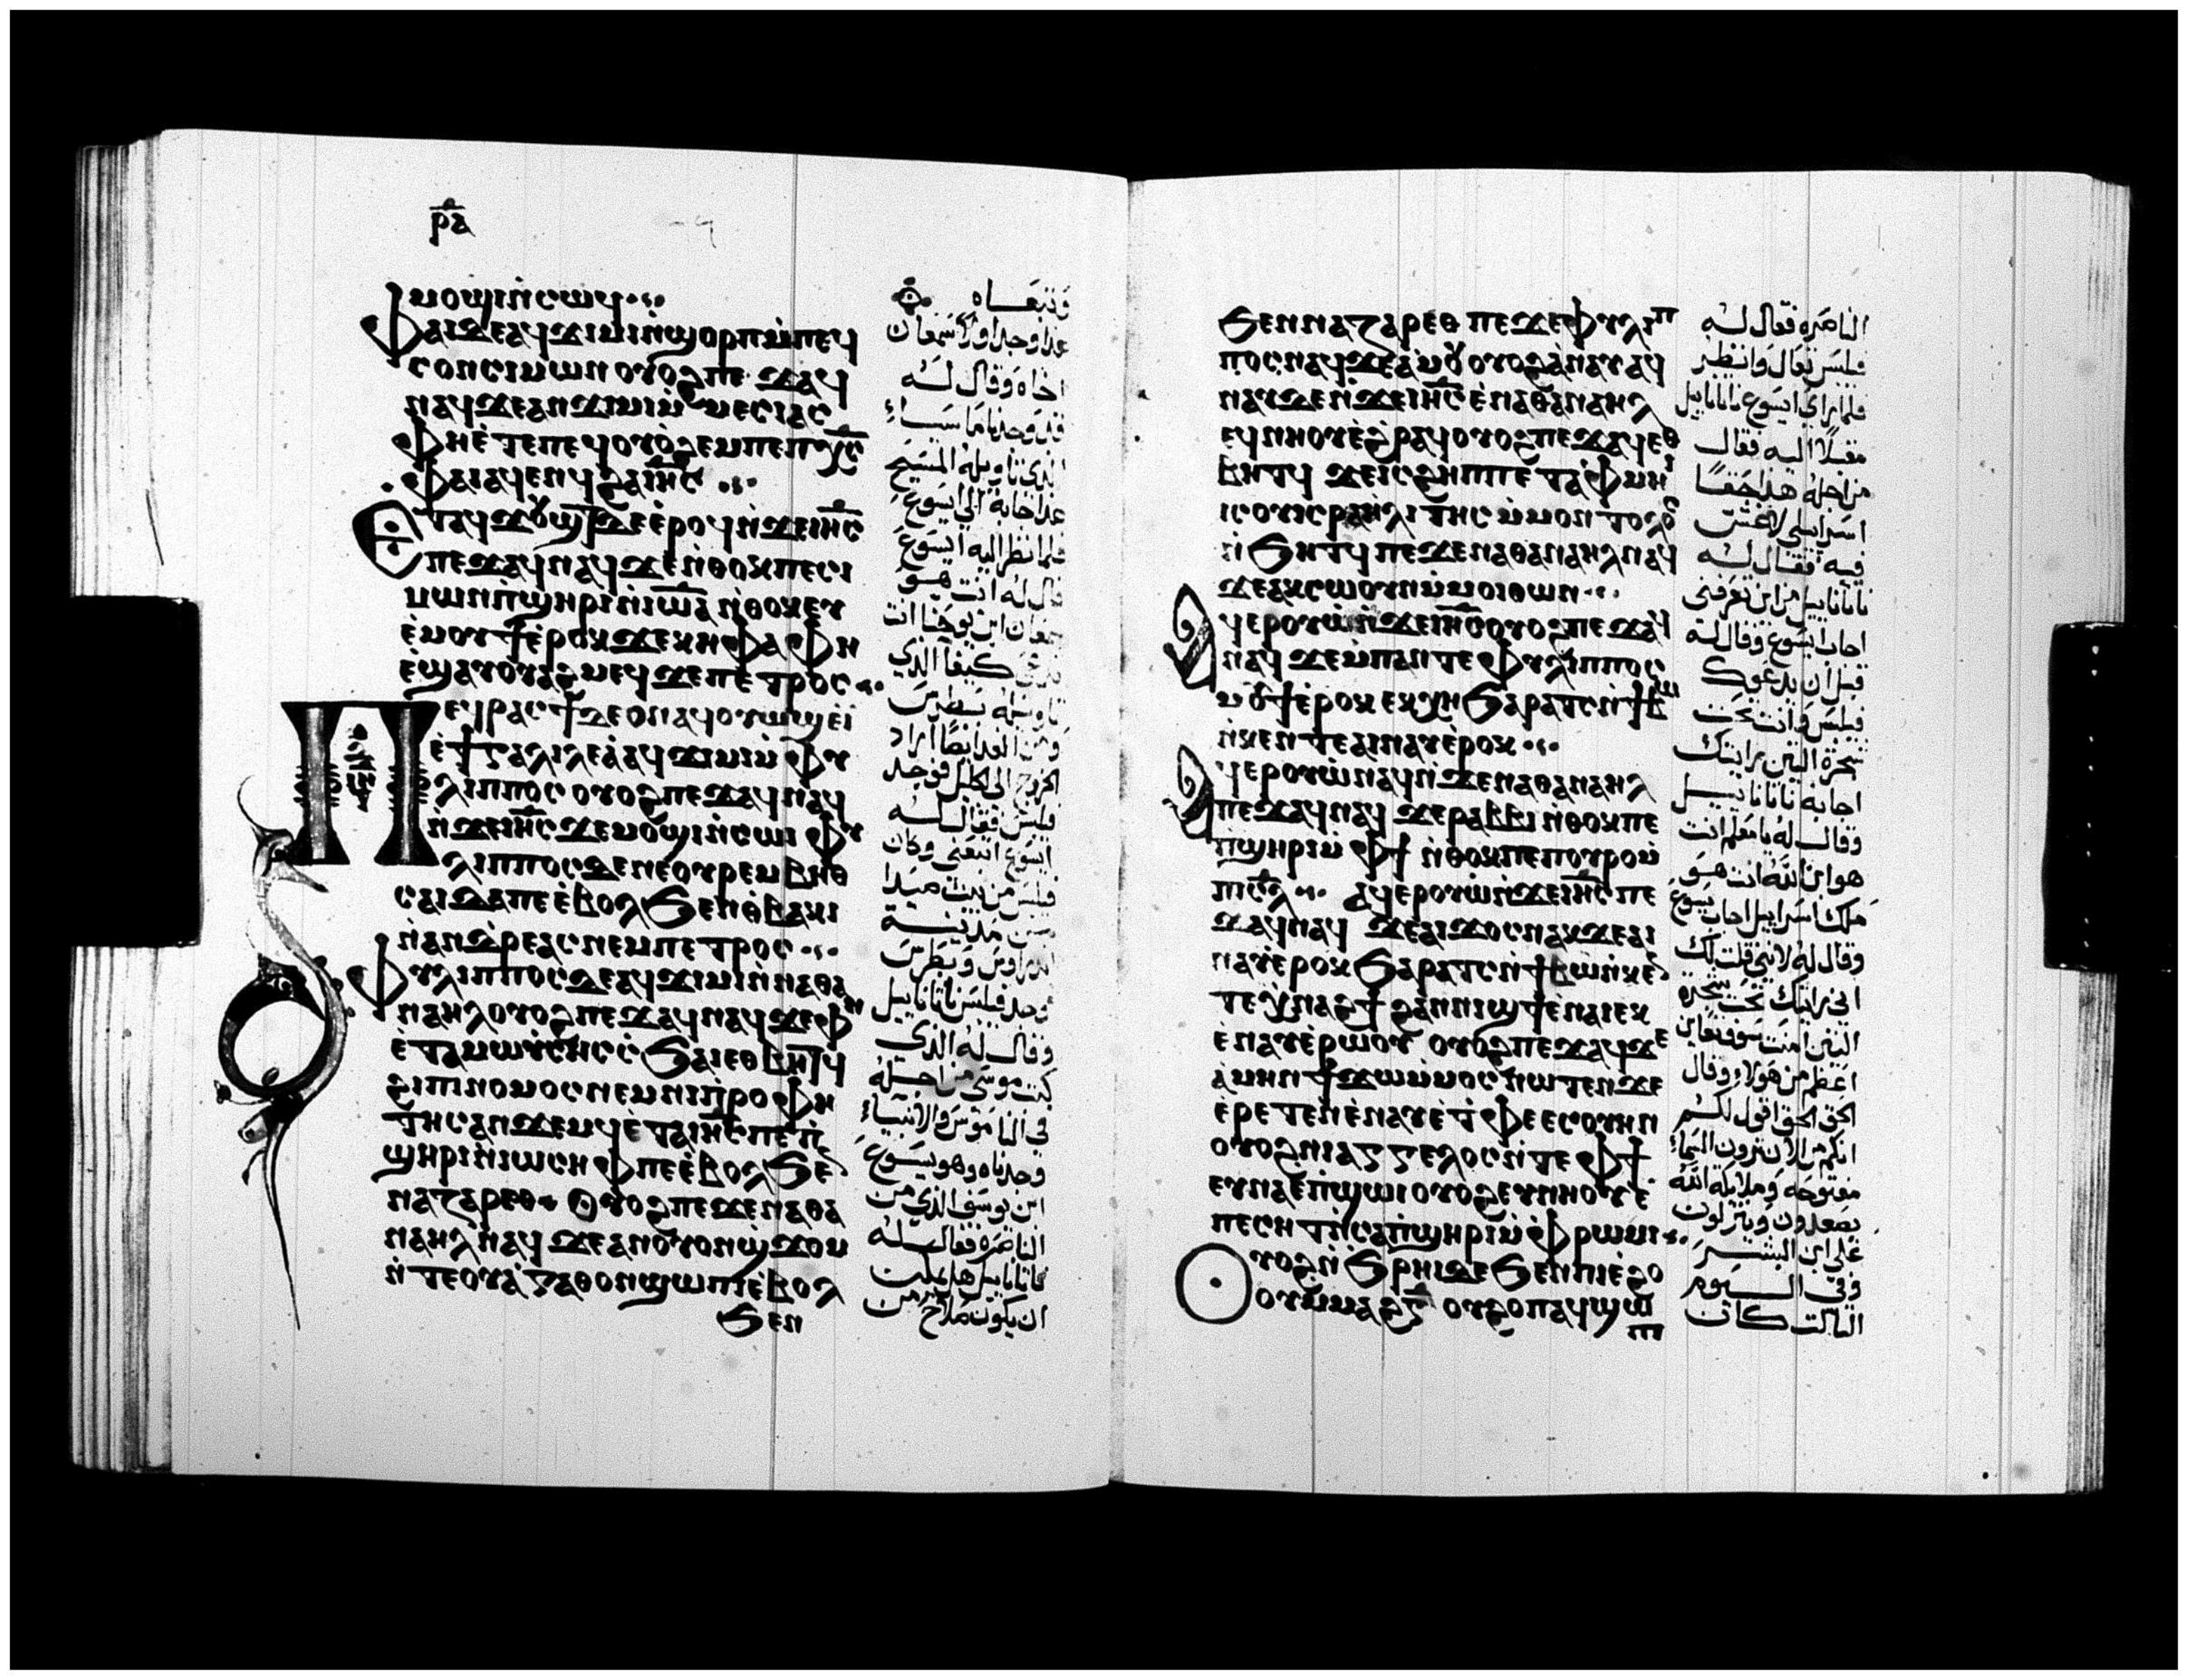 ⲣⲁ
ⲙⲟϣⲓ ⲛ̀ⲥⲱϥ
Ⲫⲁⲓ ⲇⲉ ⲁϥϫⲓⲙⲓ ⲛ̀ϣⲟⲣⲡ ⲙ̀ⲡⲉϥ
ⲥⲟⲛ ⲥⲓⲙⲱⲛ ⲟⲩⲟϩ ⲡⲉϫⲁϥ
ⲛⲁϥ ϫⲉ ⲁⲛϫⲓⲙⲓ ⲙ̀ⲙⲉⲥⲓⲁⲥ
Ⲫⲏ ⲉ̀ⲧⲉ ⲡⲉϥⲟⲩⲱϩⲉⲙ ⲡⲉ ⲡⲭ̅ⲥ̅
Ⲫⲁⲓ ⲁϥⲉⲛϥ ϩⲁ ⲓⲏ̅ⲥ̅
Ⲉⲧⲁϥϫⲟⲩϣⲧ ⲇⲉ ⲉ̀ⲣⲟϥ ⲛ̀ϫⲉ ⲓⲏ̅ⲥ̅
ⲡⲉϫⲁϥ ⲛⲁϥ ϫⲉ ⲛ̀ⲑⲟⲕ ⲡⲉ ⲥⲓ
ⲙⲱⲛ ⲡ̀ϣⲏⲣⲓ ⲛ̀ⲓⲱ̅ⲁ̅ ⲛ̀ⲑⲟⲕ ⲉⲩ
ⲉ̀ⲙⲟⲩϯ ⲉ̀ⲣⲟⲕ ϫⲉ ⲕⲏⲫⲁ ⲫⲏ
ⲉ̀ϣⲁⲩⲟⲩⲁϩⲙⲉϥ ϫⲉ ⲡⲉⲧⲣⲟⲥ
Ⲡⲉϥⲣⲁⲥϯ ⲇⲉ ⲟⲛ ⲁϥⲟⲩⲱϣ ⲉ̀ⲓ̀
ⲉ̀ϯⲅⲁⲗⲓⲗⲉⲁ̀ ⲁϥϫⲓⲙⲓ ⲙ̀ⲫⲩ
ⲗⲓⲡⲡⲟⲥ ⲟⲩⲟϩ ⲡⲉϫⲁϥ ⲛⲁϥ
ⲛ̀ϫⲉ ⲓⲏ̅ⲥ̅ ϫⲉ ⲙⲟϣⲓ ⲛ̀ⲥⲱⲓ ⲫⲩ
ⲗⲓⲡⲡⲟⲥ ⲇⲉ ⲛⲉ ⲟⲩⲣⲉⲙ ⲃⲏⲑ
ⲥⲁⲓⲇⲁ ⲡⲉ ⲉ̀ⲃⲟⲗ ϧⲉⲛ ⲑ̀ⲃⲁⲕⲓ
ⲛ̀ⲁⲛⲇⲣⲉⲁⲥ ⲛⲉⲙ ⲡⲉⲧⲣⲟⲥ
Ⲫⲩⲗⲓⲡⲡⲟⲥ ⲇⲉ ⲁϥϫⲓⲙⲓ ⲛ̀ⲛⲁⲑⲁ
ⲛⲁⲏⲗ ⲟⲩⲟϩ ⲡⲉϫⲁϥ ⲛⲁϥ ϫⲉ ⲫⲏ
ⲉ̀ⲧⲁ ⲙⲱⲩ̀ⲥⲏⲥ ⲥ̀ϧⲁⲓ ⲉⲑⲃⲏⲧϥ
ϩⲓ ⲡⲓⲛⲟⲙⲟⲥ ⲛⲉⲙ ⲛⲓⲡ̀ⲣⲟⲫⲏ
ⲧⲏⲥ ⲁⲛϫⲉⲙϥ ⲉ̀ⲧⲁⲓⲏ̅ⲥ̅ ⲡⲉ ⲡ̀
ϣⲏⲣⲓ ⲛ̀ⲓⲱⲥⲏⲫ ⲡⲉ ⲉ̀ⲃⲟⲗ ϧⲉⲛ
ⲛⲁⲍⲁⲣⲉⲑ Ⲟⲩⲟϩ ⲡⲉϫⲉ ⲛⲁⲑⲁ
ⲛⲁⲏⲗ ⲛⲁϥ ϫⲉ ⲁⲛ ⲟⲩⲟⲛ ϣϫⲟⲙ
ⲛ̀ⲧⲉ ⲟⲩⲁ̀ⲅⲁⲑⲟⲛ ϣⲱⲡⲓ ⲉ̀ⲃⲟⲗ
ϧⲉⲛ
وتبعاه
هذا وجد اولا سمعان
اخاه وقال له
قد وجدنا ماسيا
الذي تاويله المسيح
هذا جابه الى ايسوع
فلما نظر اليه ايسوع
قال له انت هو
سمعان ابن يوحنا انت
تدعى كيفا الذي
تاويله بطرس
ومن الغد ايضا اراد
الخروج الى الجليل فوجد
فيلبس فقال له
ايسوع اتبعني وكان
فيلبس من بيت صيدا
من مدينة
اندراوس وبطرس
فوجد فيلبس ناثاناييل
وقال له الذي
كتب موسى من اجله
في الناموس والانبياء
وجدناه وهو يسوع
ابن يوسف الذي من
الناصره فقال له
ناثاناييل هل يمكن
ان يكون صلاح من
ϧⲉⲛ ⲛⲁⲍⲁⲣⲉⲑ ⲡⲉϫⲉ ⲫⲩⲗⲓⲡ
ⲡⲟⲥ ⲛⲁϥ ϫⲉ ⲁ̀ⲙⲟⲩ ⲟⲩⲟϩ ⲁ̀ⲛⲁⲩ ⲁϥ
ⲛⲁⲩ ⲇⲉ ⲛ̀ϫⲉ ⲓⲏ̅ⲥ̅ ⲉ̀ⲛⲁⲑⲁⲛⲁⲏⲗ
ⲉϥⲛⲏⲟⲩ ⲉ̀ϩⲣⲁϥ ⲟⲩⲟϩ ⲡⲉϫⲁϥ ⲉⲑ
ⲃⲏⲧϥ ϫⲉ ⲓⲥ ϩⲏⲡⲡⲉ ⲧⲁⲫⲙⲏⲓ
ⲓⲥ ⲟⲩⲓⲥⲣⲁⲏⲗⲓⲧⲏⲥ ⲙ̀ⲙⲟⲛ ⲇⲟⲗⲟⲥ
ⲛ̀ϧⲏⲧϥ ⲡⲉϫⲉ ⲛⲁⲑⲁⲛⲁⲏⲗ ⲛⲁϥ
ϫⲉ ⲁⲕⲥⲱⲟⲩⲛ ⲙ̀ⲙⲟⲓ ⲑⲱⲛ
Ⲁϥⲉⲣⲟⲩⲱ̀ ⲛ̀ϫⲉ ⲓⲏ̅ⲥ̅ ⲟⲩⲟϩ ⲡⲉϫⲁϥ
ⲛⲁϥ ϫⲉ ⲙ̀ⲡⲁⲛⲧⲉ ⲫⲩⲗⲓⲡⲡⲟⲥ
ⲙⲟⲩϯ ⲉ̀ⲣⲟⲕ ⲉⲕⲭⲏ ϧⲁⲣⲁⲧⲥ ⲛ̀ϯⲃⲱ
ⲛ̀ⲕⲉⲛⲧⲉ ⲁⲓⲛⲁⲩ ⲉ̀ⲣⲟⲕ
Ⲁϥⲉⲣⲟⲩⲱ̀ ⲛⲁϥ ⲛ̀ϫⲉ ⲛⲁⲑⲁⲛⲁⲏⲗ
ⲡⲉϫⲁϥ ⲛⲁϥ ϫⲉ ⲣⲁⲃⲃⲓ ⲛ̀ⲑⲟⲕ ⲡⲉ
ⲡ̀ϣⲏⲣⲓ ⲙ̀ⲫϯ ⲛ̀ⲑⲟⲕ ⲡⲉ ⲡ̀ⲟⲩⲣⲟ ⲙ̀
ⲡⲓⲥ̅ⲗ̅ Ⲁϥⲉⲣⲟⲩⲱ̀ ⲛ̀ϫⲉ ⲓⲏ̅ⲥ̅ ⲡⲉ
ϫⲁϥ ⲛⲁϥ ϫⲉ ⲁⲓϫⲟⲥ ⲛⲁⲕ ϫⲉ ⲁⲓ
ⲛⲁⲩ ⲉ̀ⲣⲟⲕ ϧⲁⲣⲁⲧⲥ ⲛ̀ϯⲃⲱ ⲛ̀ⲕⲉⲛ
ⲧⲉ ⲭ̀ⲛⲁϩϯ ϩⲁⲛⲛⲓϣϯ ⲉ̀ⲛⲁⲓ ⲉⲕ
ⲉ̀ⲛⲁⲩ ⲉ̀ⲣⲱⲟⲩ ⲟⲩⲟϩ ⲡⲉϫⲁϥ ϫⲉ
ⲁ̀ⲙⲏⲛ ϯϫⲱ ⲙ̀ⲙⲟⲥ ⲛⲱⲧⲉⲛ ϫⲉ
ⲉ̀ⲣⲉⲧⲉⲛⲉ̀ⲛⲁⲩ ⲉ̀ⲧ̀ⲫⲉ ⲉⲥⲟⲩⲏⲛ
ⲟⲩⲟϩ ⲛⲓⲁⲅⲅⲉⲗⲟⲥ ⲛ̀ⲧⲉ ⲫϯ
ⲉⲩⲛⲁ ⲉ̀ⲡ̀ϣⲱⲓ ⲟⲩⲟϩ ⲉⲩⲛⲏⲟⲩ ⲉ
ⲡⲉⲥⲏⲧ ⲛ̀ⲥⲁ ⲡ̀ϣⲏⲣⲓ ⲙ̀ⲫⲣⲱⲙⲓ
Ⲟⲩⲟϩ ⲛ̀ϧⲣⲏⲓ ⲇⲉ ϧⲉⲛ ⲡⲓⲉ̀ϩⲟ
ⲟⲩ ⲙ̀ⲙⲁϩⲅ̅ ⲟⲩϩⲟⲡ ⲁϥϣⲱ
ⲡⲓ
الناصره فقال له
فيلبس تعال وانظر
فلما راى ايسوع ناثاناييل
مقبلا اليه فقال
من اجله هذا حقا
اسراييلي لا غش
فيه فقال له
ناثاناييل من اين تعرفني
اجاب ايسوع وقال له
قبل ان يدعوك
فيلبس وانت تحت
شجرة التين رايتك
اجابه ناثاناييل
وقال له يا معلم انت
هو ابن الله انت هو
ملك اسراييل اجاب يسوع
وقال له لانني قلت لك
اني رايتك تحت شجرة
التين امنت سوف تعاين
اعظم من هولاء وقال
الحق الحق اقول لكم
انكم من الان ترون السماء
مفتوحه وملايكة الله
يصعدون وينزلون
على ابن البشر
وفي اليوم
الثالث كان